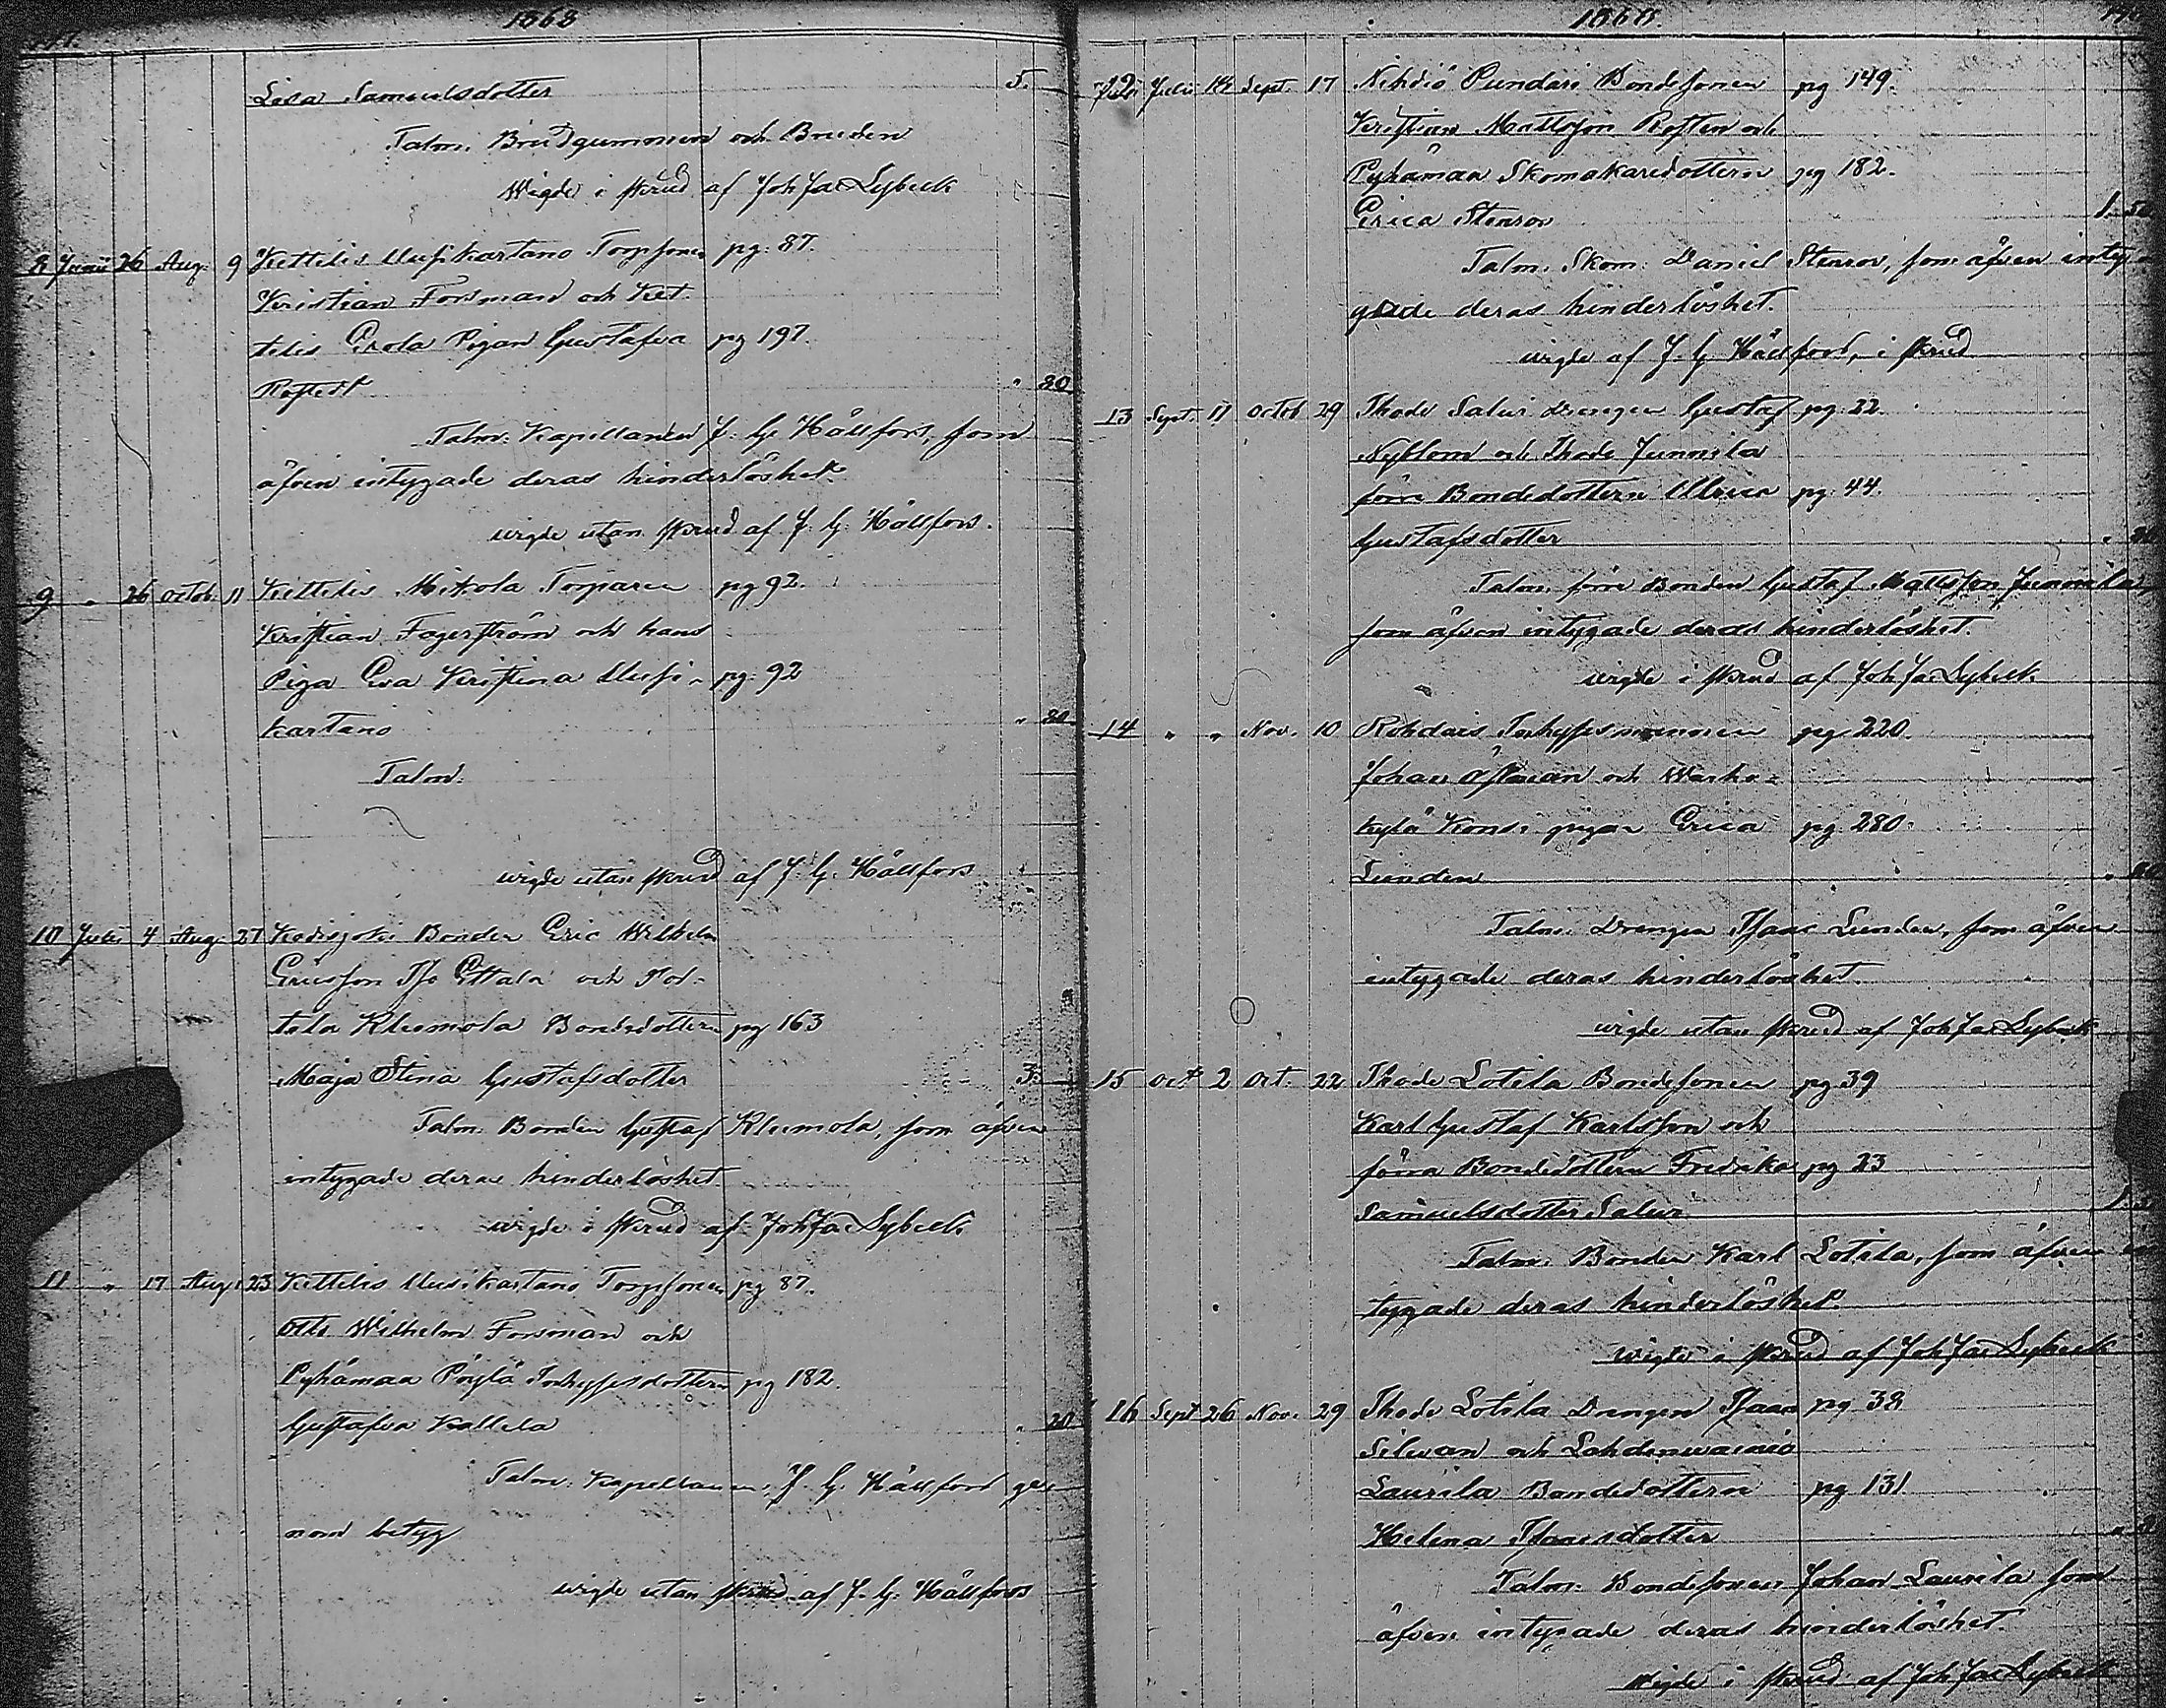 1868
Lisa Samuelsdotter 5.
Talm. Brudgummen och Bruden
Wigde i skrud af Joh Jac Lybeck
8 Junii 26 Aug. 9 Kettelis Uusikartano Torpsonen pg. 87.
Kristian Forsman och Ket-
telis Erola Pigan Gustafva pg 197.
Rostedt " 80
Talm. Kapellanen J. G. Hällfors, som
äfven intygade deras hinderlöshet.
wigde utan skrud af J. G. Hällfors.
9 " 26 Octob. 11 Kettelis Mikola Torparen pg 92.
Kristian Fagerström och hans
Piga Eva Kristina Uusi- pg. 92
kartano " 80
Talm.
wigde utan skrud af J. G. Hällfors
10 Julii 4 Aug. 27 Bonden Eric Wilhelm
Ericsson Iso Ettala och
Kleemola Bondedottern pg 163
Maja Stina Gustafsdotter 3.
Talm. Bonden Gustaf Kleemola, som äfven
intygade deras hinderlöshet.
wigde i skrud af Joh Jac Lybeck
11 " 17 Aug. 23 Kettelis Uusikartano Torpsonen pg 87.
Otto Wilhelm Forsman och
Pyhämaa Pöylä Inhysesdottern pg 182.
Gustafva Kallela " 20
Talm. Kapellanen J. G. Hällfors ge-
nom betyg
wigde utan skrud af J. G. Hällfors
1868.
12 Julii 18 Sept. 17 Nihdiö Pundari Bondesonen pg 149.
Kristian Mattsson och
Pyhämaa Skomakaredottern pg 182.
Erica Stenros 1. 50
Talm. Skom. Daniel Stenros, som äfven inty-
gade deras hinderlöshet.
wigde af J. G. Hällfors, i skrud
13 Sept. 11 Octob 29 Ihode Salwi drengen Gustaf pg. 22.
Nyblom och Ihode Junnila
förre Bondedottern Ulrica pg. 44.
Gustafsdotter " 80
Talm. förre Bonden Gustaf Mattsson Junnila
som äfven intygade deras hinderlöshet.
wigde i skrud af Joh Jac Lybeck
14 " " Nov. 10 Rohdais Inhysesmannen pg. 220.
Johan Östman och Warho-
kylä Konsi pigan Erica pg. 280.
Lunden " 80
Talm. Drengen Isaac Lunden, som äfven
intygade deras hinderlöshet.
wigde utan skrud af Joh Jac Lybeck
15 Oct 2 Oct. 22 Ihode Lotila Bondesonen pg 39
Karl Gustaf Karlsson och
förra Bondedottern Fredrika pg 23
Samuelsdotter Salwi
Talm. Bonden Karl Lotila, som äfven in
tygade deras hinderlöshet.
wigde i skrud af Joh Jac Lybeck
16 Sept 26 Nov. 29 Ihode Lotila Drengen Isaac pg 38
Silwan och Lahdenwainio
Laurila Bondedottern pg 131
Helena Isaacsdotter
Talm. Bondesonen Johan Laurila som
äfven intygade deras hinderlöshet.
wigde i skrud af Joh Jac Lybeck